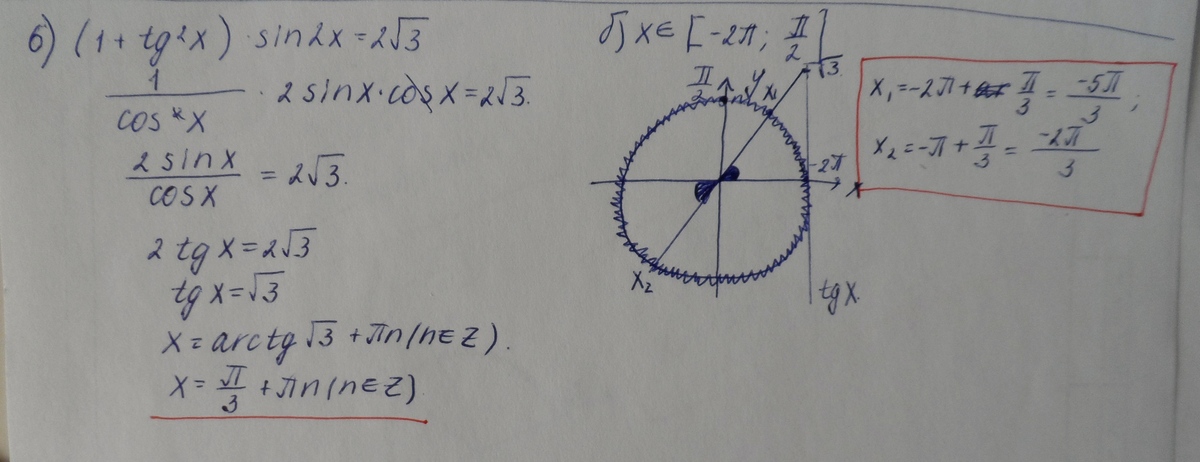 б) (1 + tg²x) · sin2x = 2√3
1
cos²x
· 2 sinx · cosx = 2√3.
2 sinx
cosx
= 2√3.
2 tg x = 2√3
tg x = √3
x = arctg √3 + πn (n ∈ Z).
x = π/3 + πn (n ∈ Z)
б) x ∈ [-2π; π/2]
√3
π/2
y
x₁
-2π
x
x₂
tg x.
x₁ = -2π + π/3 = -5π/3;
x₂ = -π + π/3 = -2π/3